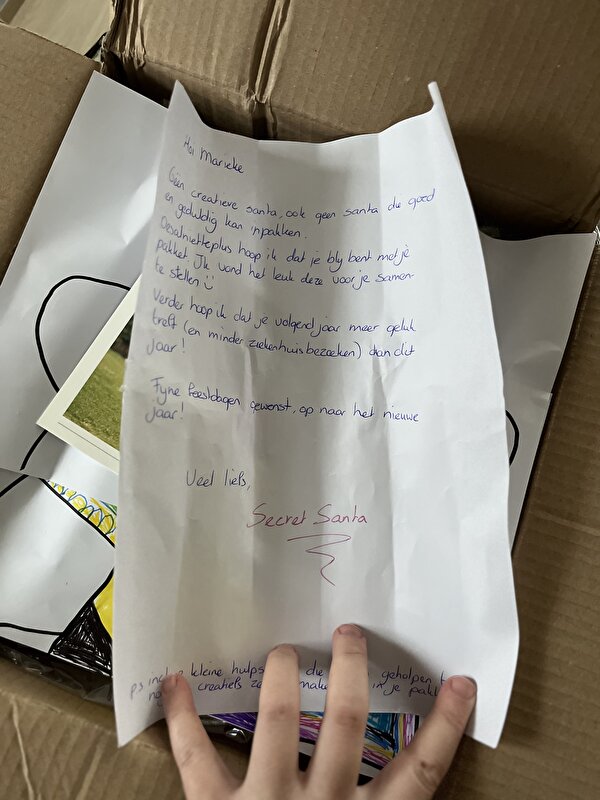 Hoi Marieke
Géén creatieve santa, ook geen santa die goed
en geduldig kan inpakken.
Desalnietteplus hoop ik dat je blij bent met je
pakket. Ik vond het leuk deze voor je samen
te stellen
Verder hoop ik dat je volgend jaar meer geluk
treft (en minder ziekenhuisbezoeken) dan dit
jaar!
Fijne feestdagen gewenst, op naar het nieuwe
jaar!
Veel liefs,
Secret Santa
ps kleine hulps die geholpen
creatiefs make je